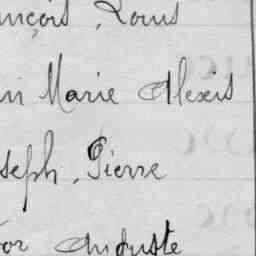 nçois, Louis
n Marie Alexis
seph, Pierre
or Auguste